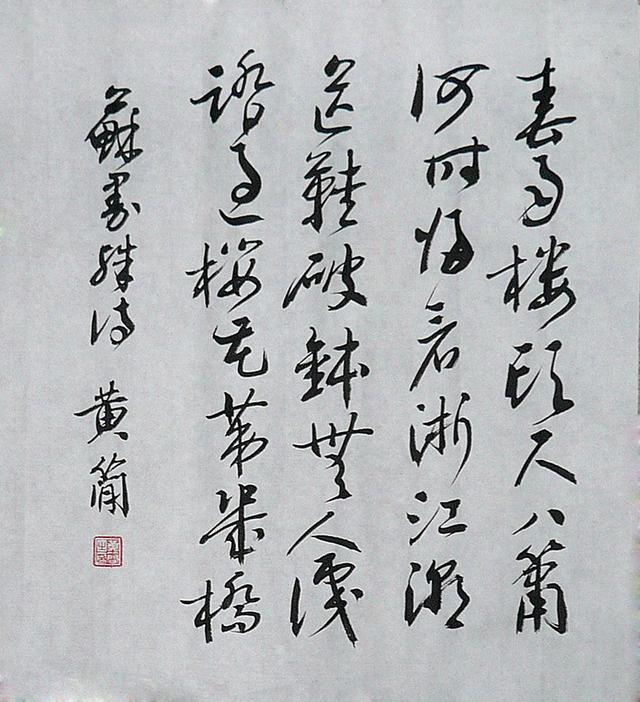 春雨樓頭尺八簫
何時歸看浙江潮
芒鞋破鉢無人識
踏過櫻花第幾橋
蘇曼殊詩 黄簡